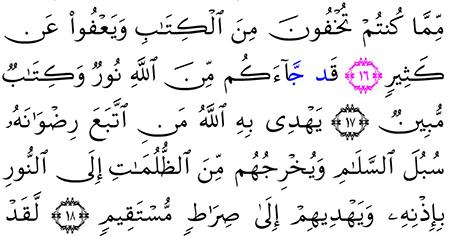 مِّمَّا كُنتُمْ تُخْفُونَ مِنَ ٱلْكِتَٰبِ وَيَعْفُواْ عَن
كَثِيرٍ ١٦ قَد جَّآءَكُم مِّنَ ٱللَّهِ نُورٌ وَكِتَٰبٌ
مُّبِينٌ ١٧ يَهْدِى بِهِ ٱللَّهُ مَنِ ٱتَّبَعَ رِضْوَٰنَهُۥ
سُبُلَ ٱلسَّلَٰمِ وَيُخْرِجُهُم مِّنَ ٱلظُّلُمَٰتِ إِلَى ٱلنُّورِ
بِإِذْنِهِۦ وَيَهْدِيهِمْ إِلَىٰ صِرَٰطٍ مُّسْتَقِيمٍ ١٨ لَّقَدْ